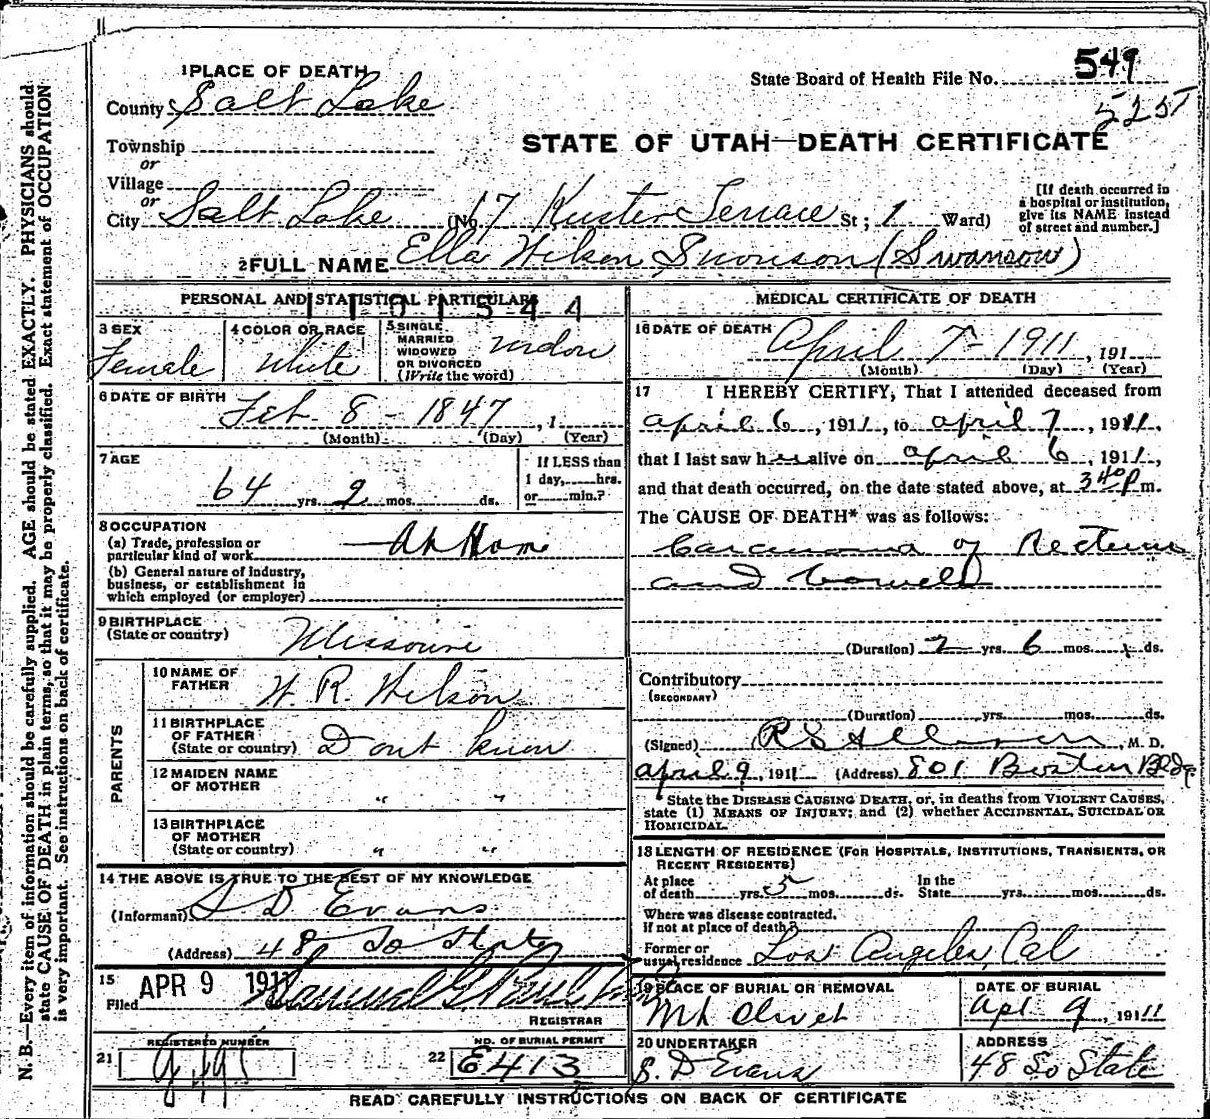 1 PLACE OF DEATH
State Board of Health File No. 549
County Salt Lake
525
STATE OF UTAH—DEATH CERTIFICATE
Township
or
Village
or
City Salt Lake (No. 17 Kuster Terrace St ; 1 Ward)
[If death occurred in
a hospital or institution,
give its NAME instead
of street and number.]
2 FULL NAME Ella Wilson Swonson (Swanson)
PERSONAL AND STATISTICAL PARTICULARS
1101544
3 SEX
Female
4 COLOR OR RACE
White
5 SINGLE
MARRIED
WIDOWED
OR DIVORCED
(Write the word)
widow
6 DATE OF BIRTH
Feb. 8 - 1847, 1
(Month) (Day) (Year)
7 AGE
64 yrs. 2 mos. ds.
If LESS than
1 day, hrs.
or min.?
8 OCCUPATION
(a) Trade, profession or
particular kind of work At Home
(b) General nature of industry,
business, or establishment in
which employed (or employer)
9 BIRTHPLACE
(State or country) Missouri
PARENTS
10 NAME OF
FATHER W. R. Wilson
11 BIRTHPLACE
OF FATHER
(State or country) Dont know
12 MAIDEN NAME
OF MOTHER " "
13 BIRTHPLACE
OF MOTHER
(State or country) " "
14 THE ABOVE IS TRUE TO THE BEST OF MY KNOWLEDGE
(Informant) S D Evans
(Address) 48 So State
15
Filed APR 9 1911
REGISTRAR
REGISTERED NUMBER
21
NO. OF BURIAL PERMIT
22 E6413
MEDICAL CERTIFICATE OF DEATH
16 DATE OF DEATH
April 7 - 1911, 191
(Month) (Day) (Year)
17 I HEREBY CERTIFY, That I attended deceased from
april 6, 1911, to april 7, 1911,
that I last saw her alive on april 6, 1911,
and that death occurred, on the date stated above, at 3 40 P m.
The CAUSE OF DEATH* was as follows:
Carcinoma of Rectum
and bowell
(Duration) 2 yrs. 6 mos. ds.
Contributory
(SECONDARY)
(Duration) yrs. mos. ds.
(Signed) R S Allison, M. D.
april 9, 1911 (Address) 801 Boston Bldg
*State the DISEASE CAUSING DEATH, or, in deaths from VIOLENT CAUSES,
state (1) MEANS OF INJURY; and (2) whether ACCIDENTAL, SUICIDAL OR
HOMICIDAL.
18 LENGTH OF RESIDENCE (FOR HOSPITALS, INSTITUTIONS, TRANSIENTS, OR
RECENT RESIDENTS)
At place
of death yrs. 5 mos. ds.
In the
State yrs. mos. ds.
Where was disease contracted,
if not at place of death?
Former or
usual residence Los Angeles, Cal
19 PLACE OF BURIAL OR REMOVAL
Mt Olivet
DATE OF BURIAL
Apl 9, 1911
20 UNDERTAKER
S. D Evans
ADDRESS
48 So State
READ CAREFULLY INSTRUCTIONS ON BACK OF CERTIFICATE
N. B.—Every item of information should be carefully supplied. AGE should be stated EXACTLY. PHYSICIANS should
state CAUSE OF DEATH in plain terms, so that it may be properly classified. Exact statement of OCCUPATION
is very important. See instructions on back of certificate.